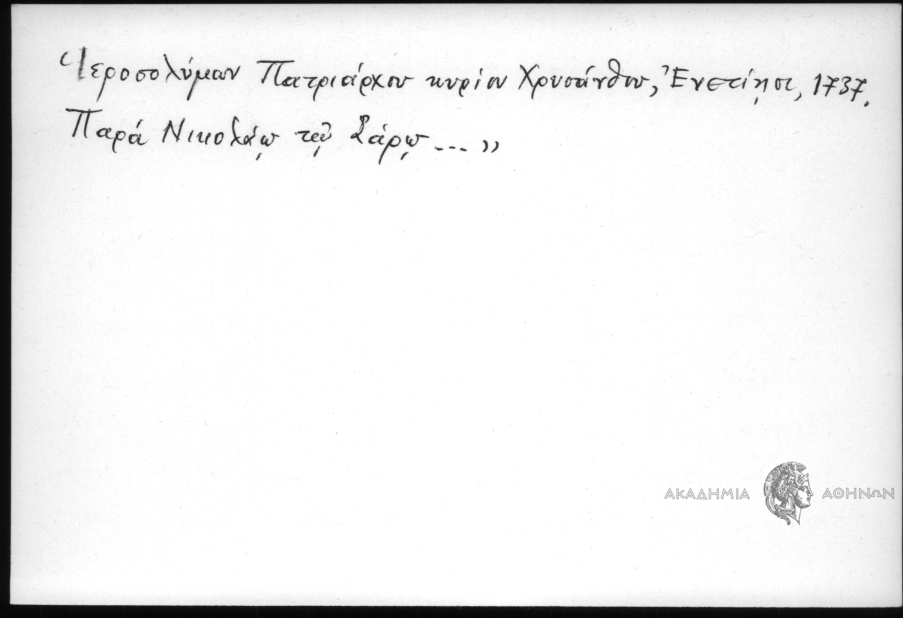 Ἱεροσολύμων Πατριάρχου κυρίου Χρυσάνθου, Ἐνετίῃσι, 1737.
Παρά Νικολάῳ τῷ Σάρῳ ... »
ΑΚΑΔΗΜΙΑ ΑΘΗΝΩΝ